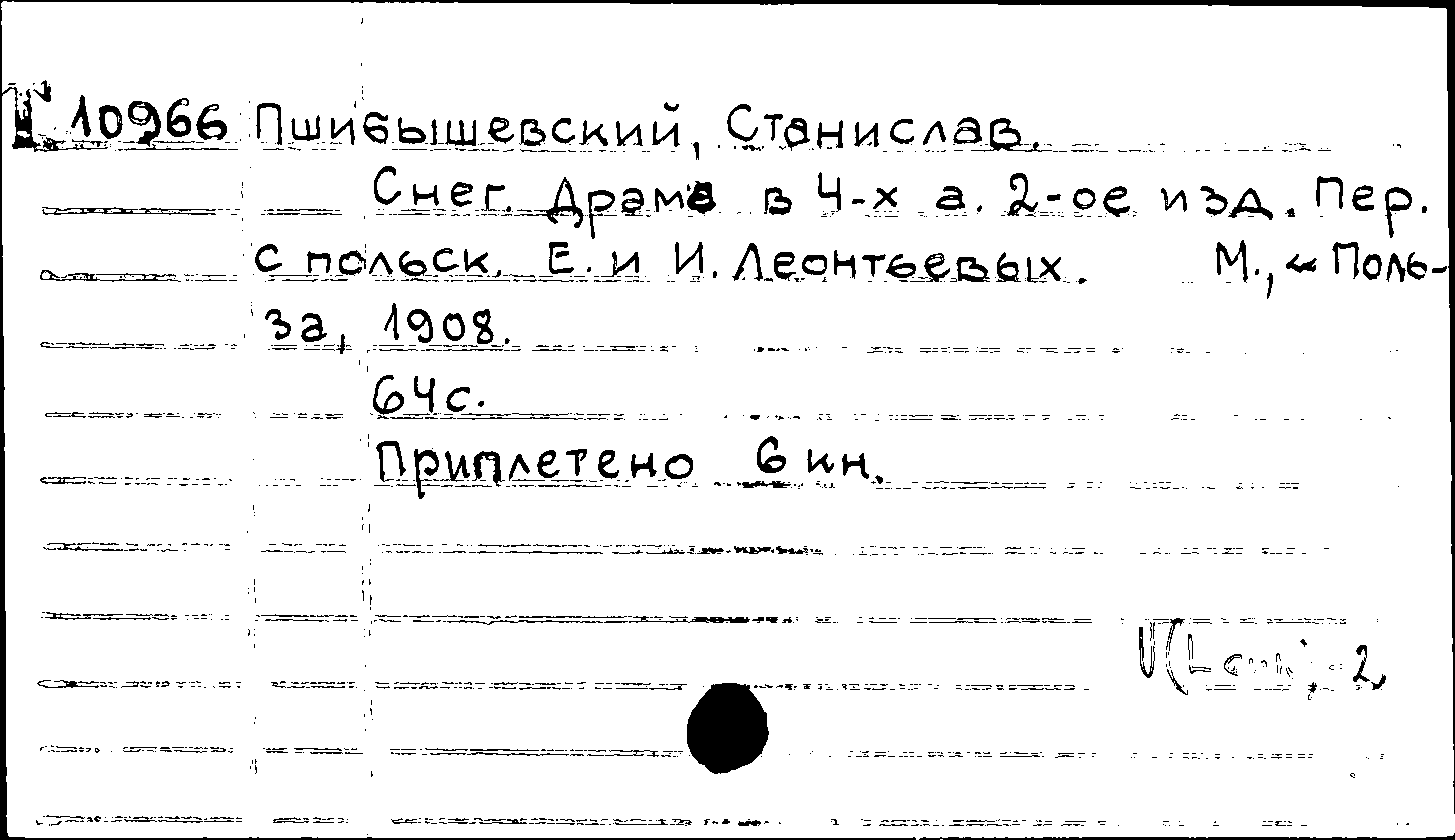 I 10966 Пшибышевский, Станислав.
Снег. Драма в 4-х а. 2-ое изд. Пер.
с польск. Е. и И. Леонтьевых. М., « Поль-
за, 1908.
64с.
Приплетено 6 кн.